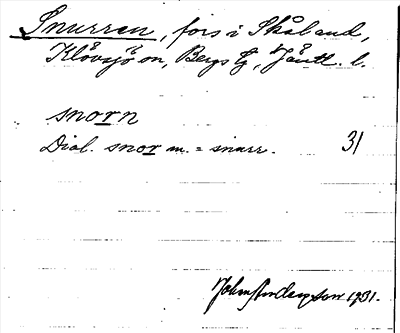 Snurren, fors i Skåland,
Klövsjö sn, Bergs tg, Jämtl. l.
snorn
Dial. snor m. = snurr. 31
John Anderzson 1931.